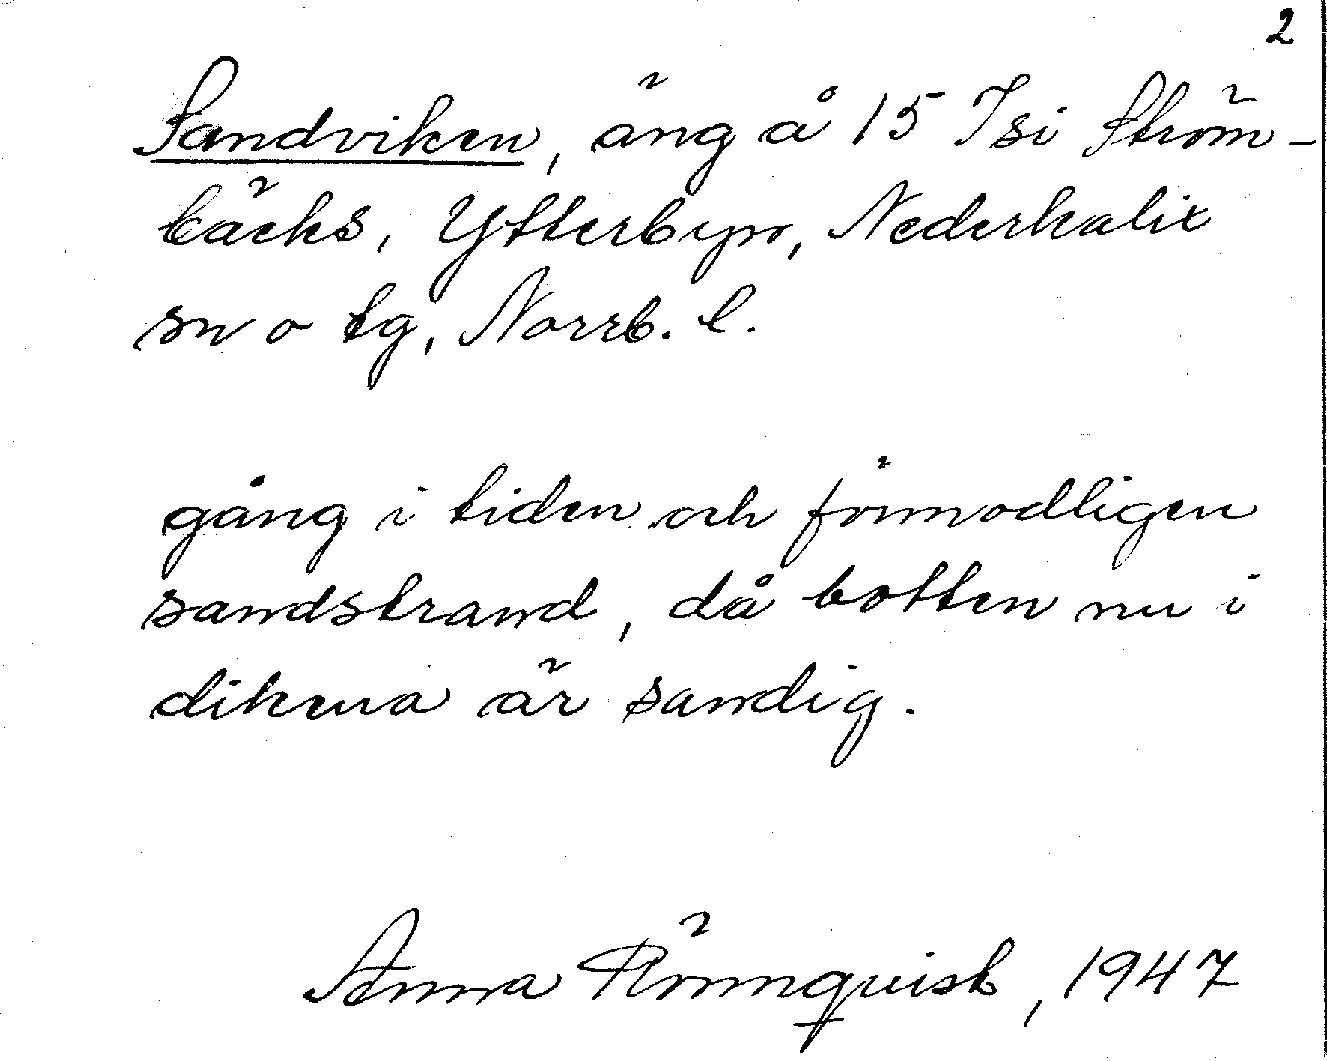 2
Sandviken, äng å 15 Isi Ström-
bäcks, Ytterbyn, Nederkalix
sn o tg, Norrb. l.
gång i tiden och förmodligen
sandstrand, då botten nu i
dikena är sandig.
Anna Rönnquist, 1947